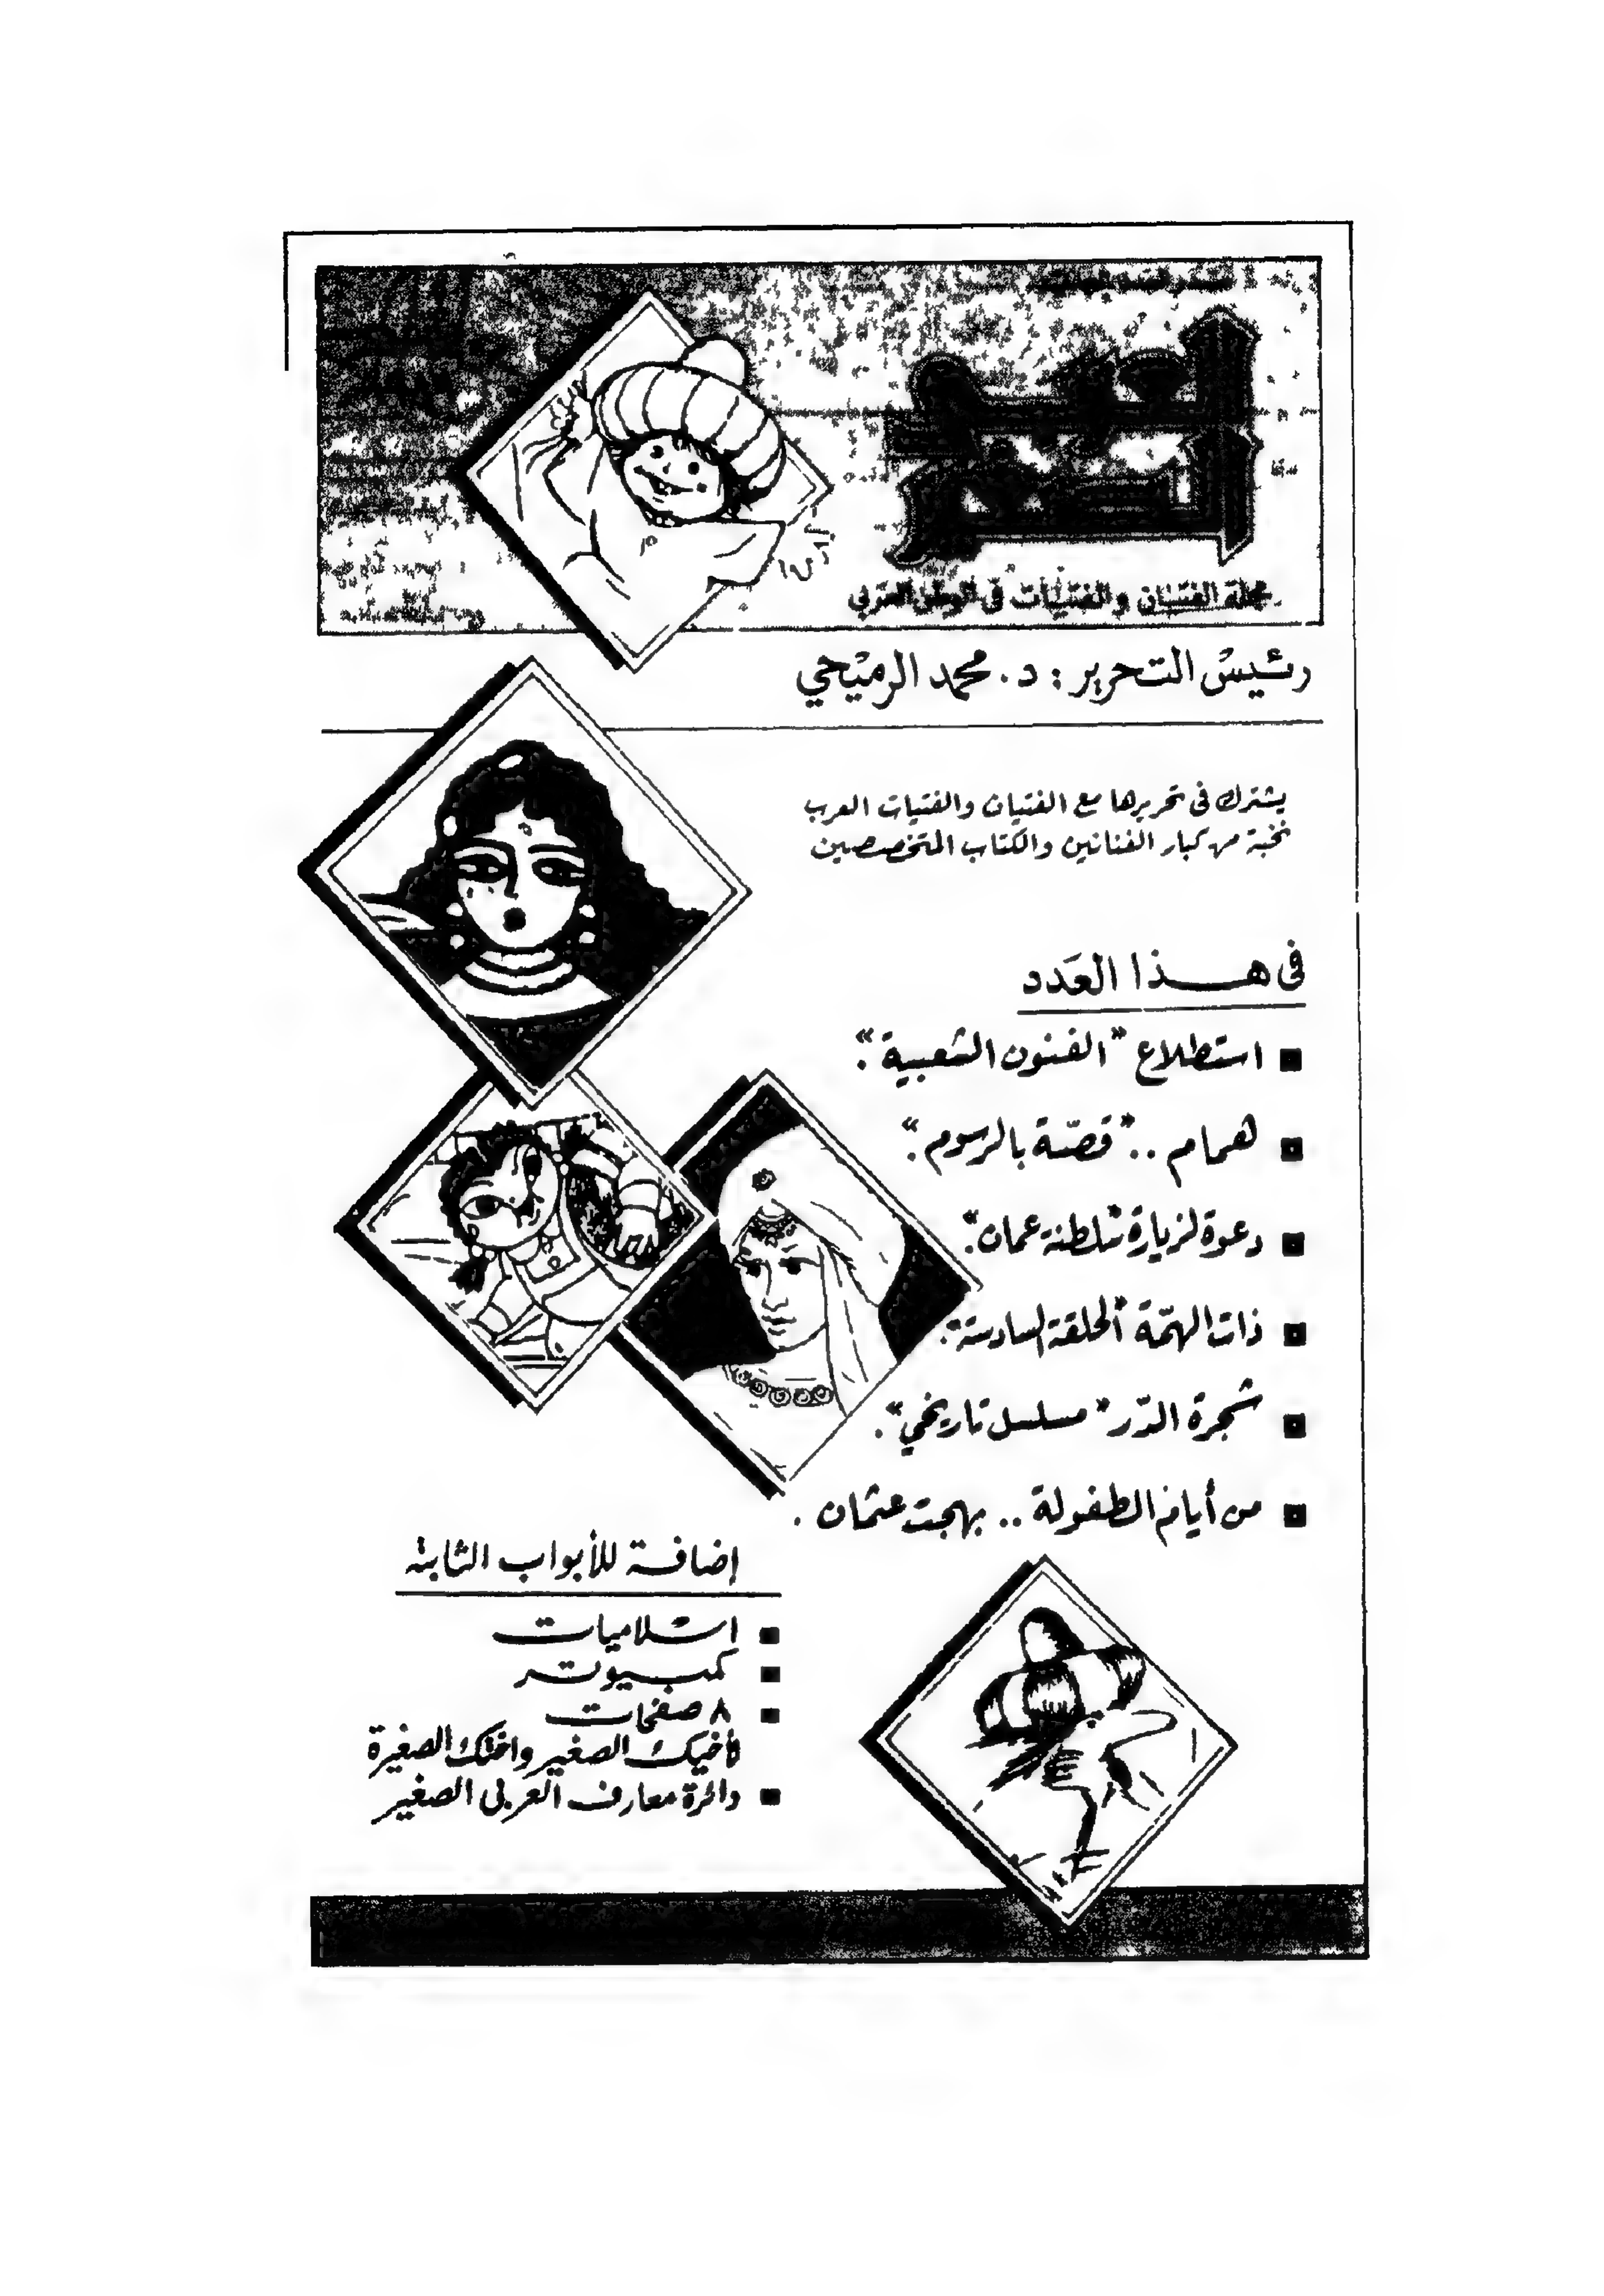 العربي
الصغير
مجلة الفتيان والفتيات في الوطن العربي
رئيس التحرير : د. محمد الرميحي
يشترك في تحريرها مع الفتيان والفتيات العرب
نخبة من كبار الفنانين والكتاب المتخصصين
في هذا العَدد
■ استطلاع "الفنون الشعبية".
■ همام .. "قصّة بالرسوم".
■ دعوة لزيارة "سلطنة عمان".
■ ذات الهمّة "الحلقة السادسة".
■ شجرة الدّر "مسلسل تاريخي".
■ من أيام الطفولة .. بهجت عثمان .
إضافة للأبواب الثابتة
■ اسلاميات
■ كمبيوتر
■ ٨ صفحات
لأخيك الصغير واختك الصغيرة
■ دائرة معارف العربي الصغير